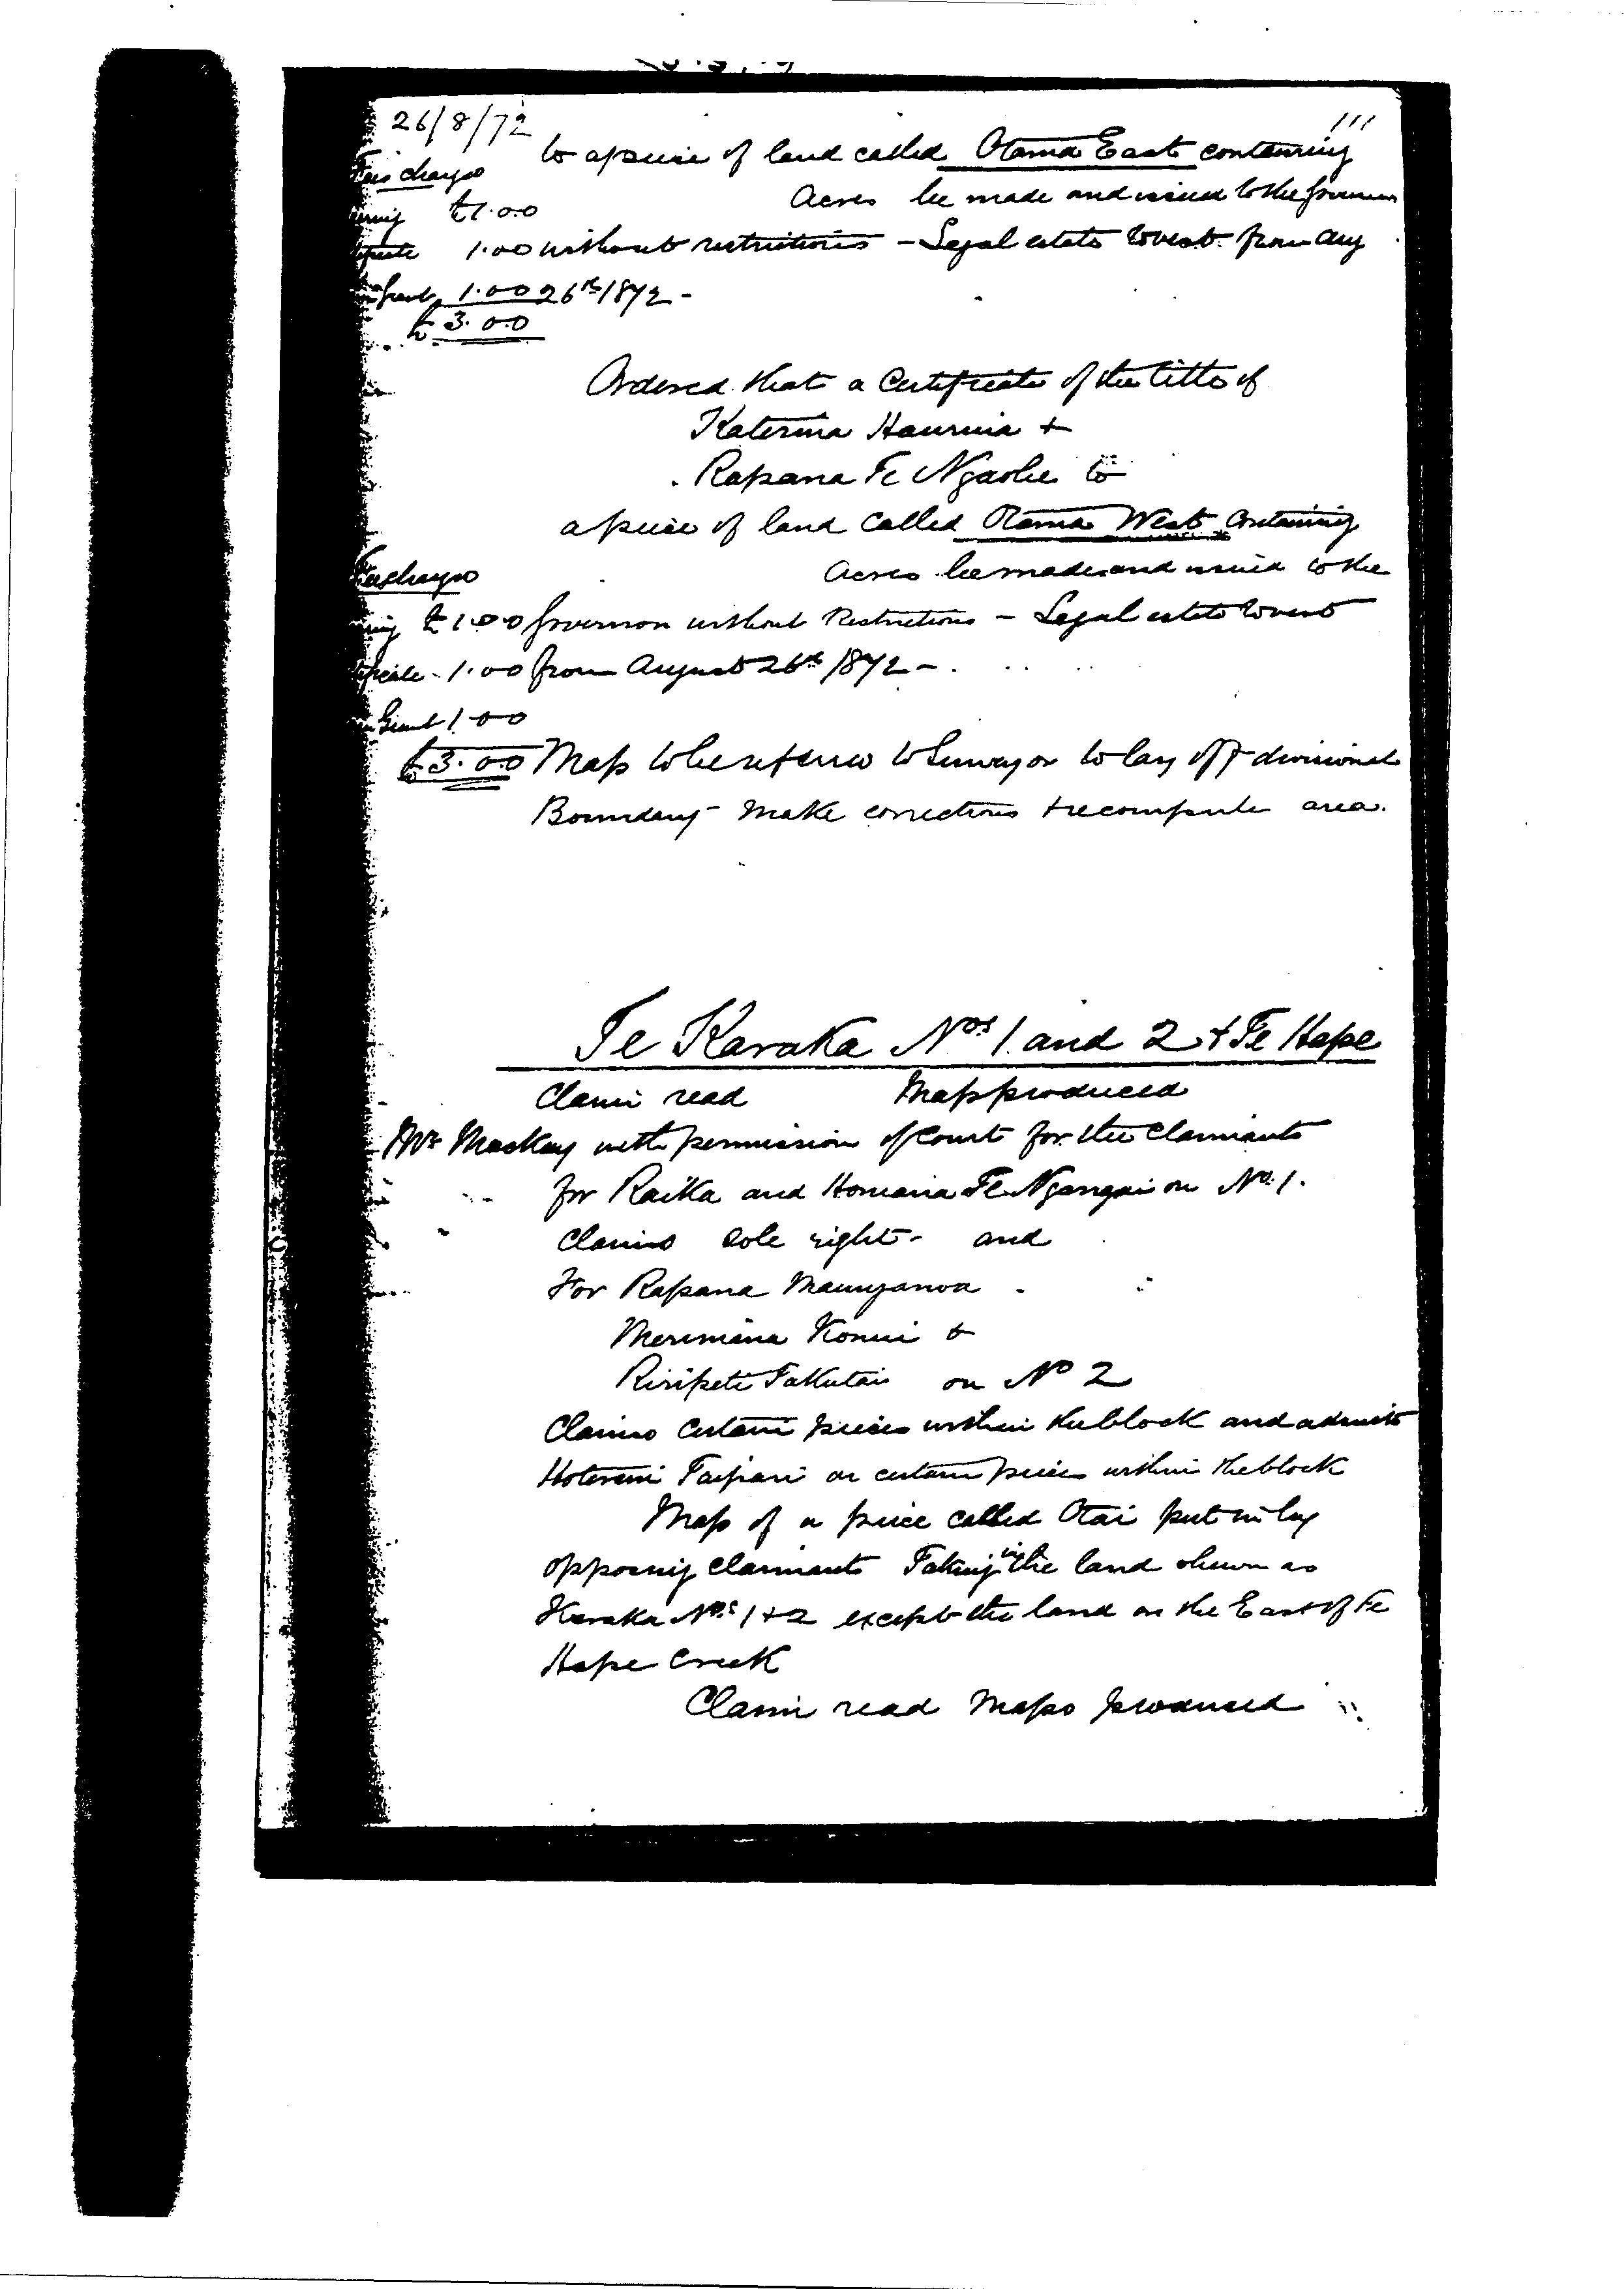 26/8/72
111
to a piece of land called Otama East containing
Fees charged
Acres be made and issued to the Governor
£1.0.0
1.00 without restrictions - Legal estate to vest from Aug
1.00 26th 1872 -
£3.0.0
Ordered that a Certificate of the title of
Katerina Hauruia +
Rapana Te Ngaohe to
a piece of land called Otama West containing
Acres be made and issued to the
Fees charged
£1.00 Governor without Restrictions - Legal estate to vest
1.00 from August 26th 1872 -
Grant 1.00
£3.00 Map to be returned to Surveyor to lay off divisional
Boundary make corrections + recompute area.
Te Karaka Nos 1 and 2 + Te Hape
Claim read Map produced
Mr Mackay with permission of Court for the Claimants
for Raika and Homaria Te Ngangai on No. 1.
Claims sole right - and
For Rapana Maunganoa
Meremana Konui +
Riripeti Takutai on No 2
Claims certain pieces within the block and admits
Hotereni Taipari on certain pieces within the block
Map of a piece called Otai put in by
opposing claimants Taking in the land shewn as
Karaka Nos 1 + 2 except the land on the East of Te
Hape Creek
Claim read Maps produced